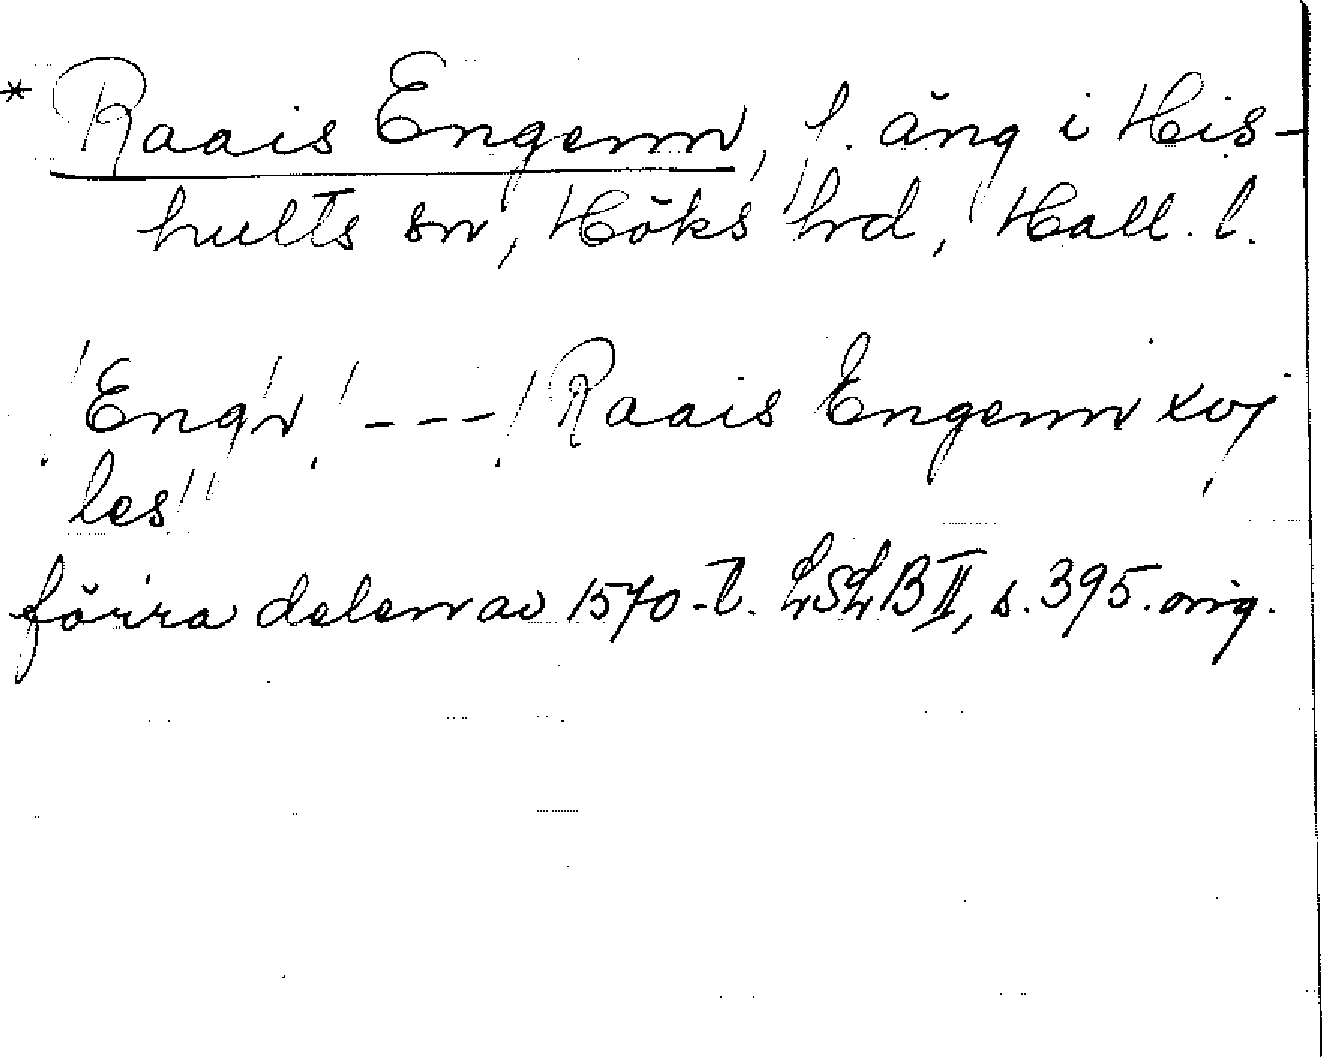 * Raais Engenn, f. äng i His-
hults sn, Höks hrd, Hall. l.
"Eng'r' --- ' Raais Engenn xvj
les"
förra delen av 1570-t. LSLB II, s. 395. orig.